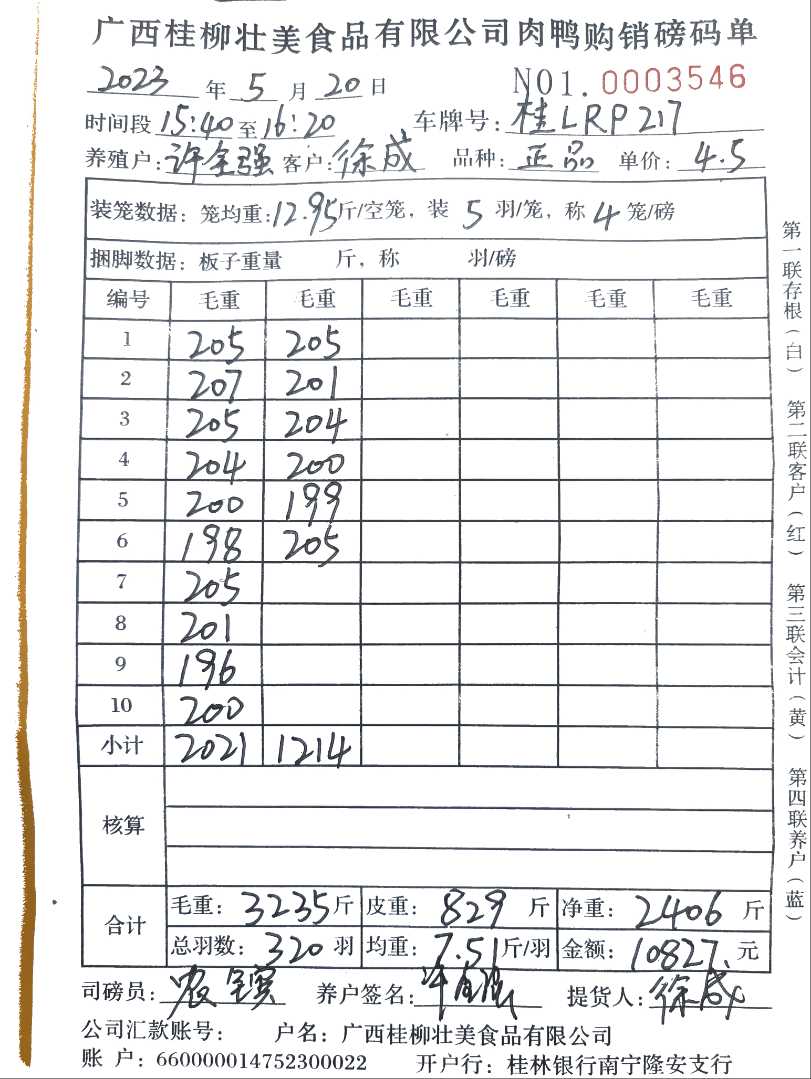 广西桂柳壮美食品有限公司肉鸭购销磅码单
2023 年 5 月 20 日 NO1. 0003546
时间段 15:40 至 16:20 车牌号: 桂LRP217
养殖户: 许全强 客户: 徐成 品种: 正品 单价: 4.5
装笼数据: 笼均重: 12.95 斤/空笼, 装 5 羽/笼, 称 4 笼/磅
捆脚数据: 板子重量 斤, 称 羽/磅
编号 毛重 毛重 毛重 毛重 毛重 毛重
1 205 205
2 207 201
3 205 204
4 204 200
5 200 199
6 198 205
7 205
8 201
9 196
10 200
小计 2021 1214
核算
合计 毛重: 3235 斤 皮重: 829 斤 净重: 2406 斤
总羽数: 320 羽 均重: 7.51 斤/羽 金额: 10827. 元
司磅员: 农全宾 养户签名: 许全强 提货人: 徐成
公司汇款账号: 户名: 广西桂柳壮美食品有限公司
账 户: 660000014752300022 开户行: 桂林银行南宁隆安支行
第一联存根(白) 第二联客户(红) 第三联会计(黄) 第四联养户(蓝)